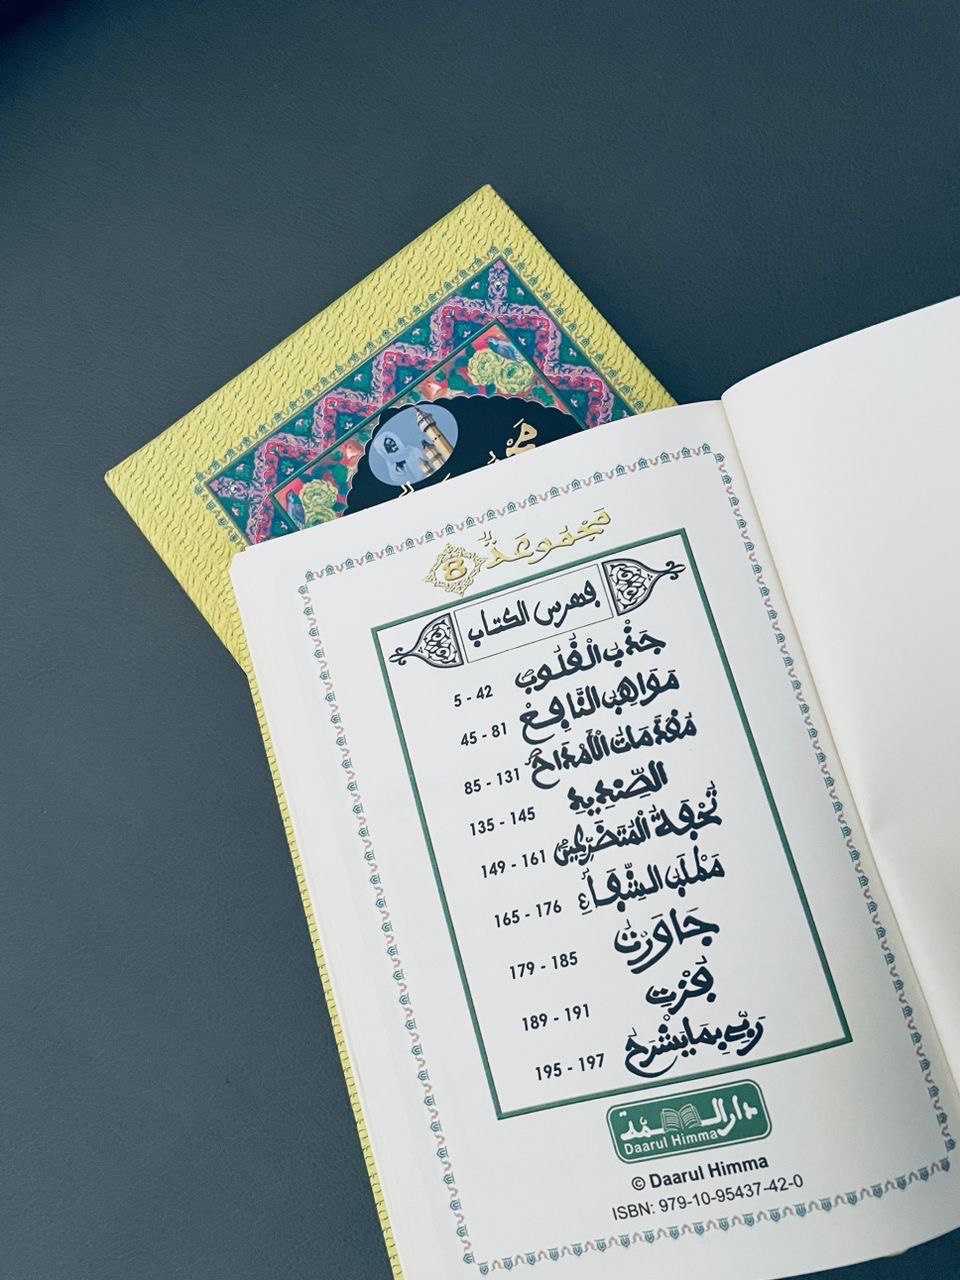 مجموعة 8
فهرس الكتاب
جَذْبُ الْقُلُوبْ 5 - 42
مَوَاهِبُ النَّافِعْ 45 - 81
مُقَدِّمَاتُ الْأَمْدَاحْ 85 - 131
الصِّنْدِيدِ 135 - 145
تُحْفَةُ الْمُتَضَرِّعِينْ 149 - 161
مَطْلَبُ الشِّفَاءِ 165 - 176
جَاوَرْتُ 179 - 185
فُزْتِ 189 - 191
رَبِّي بِمَا يَشْرَحُ 195 - 197
دار الهمّة
Daarul Himma
© Daarul Himma
ISBN: 979-10-95437-42-0